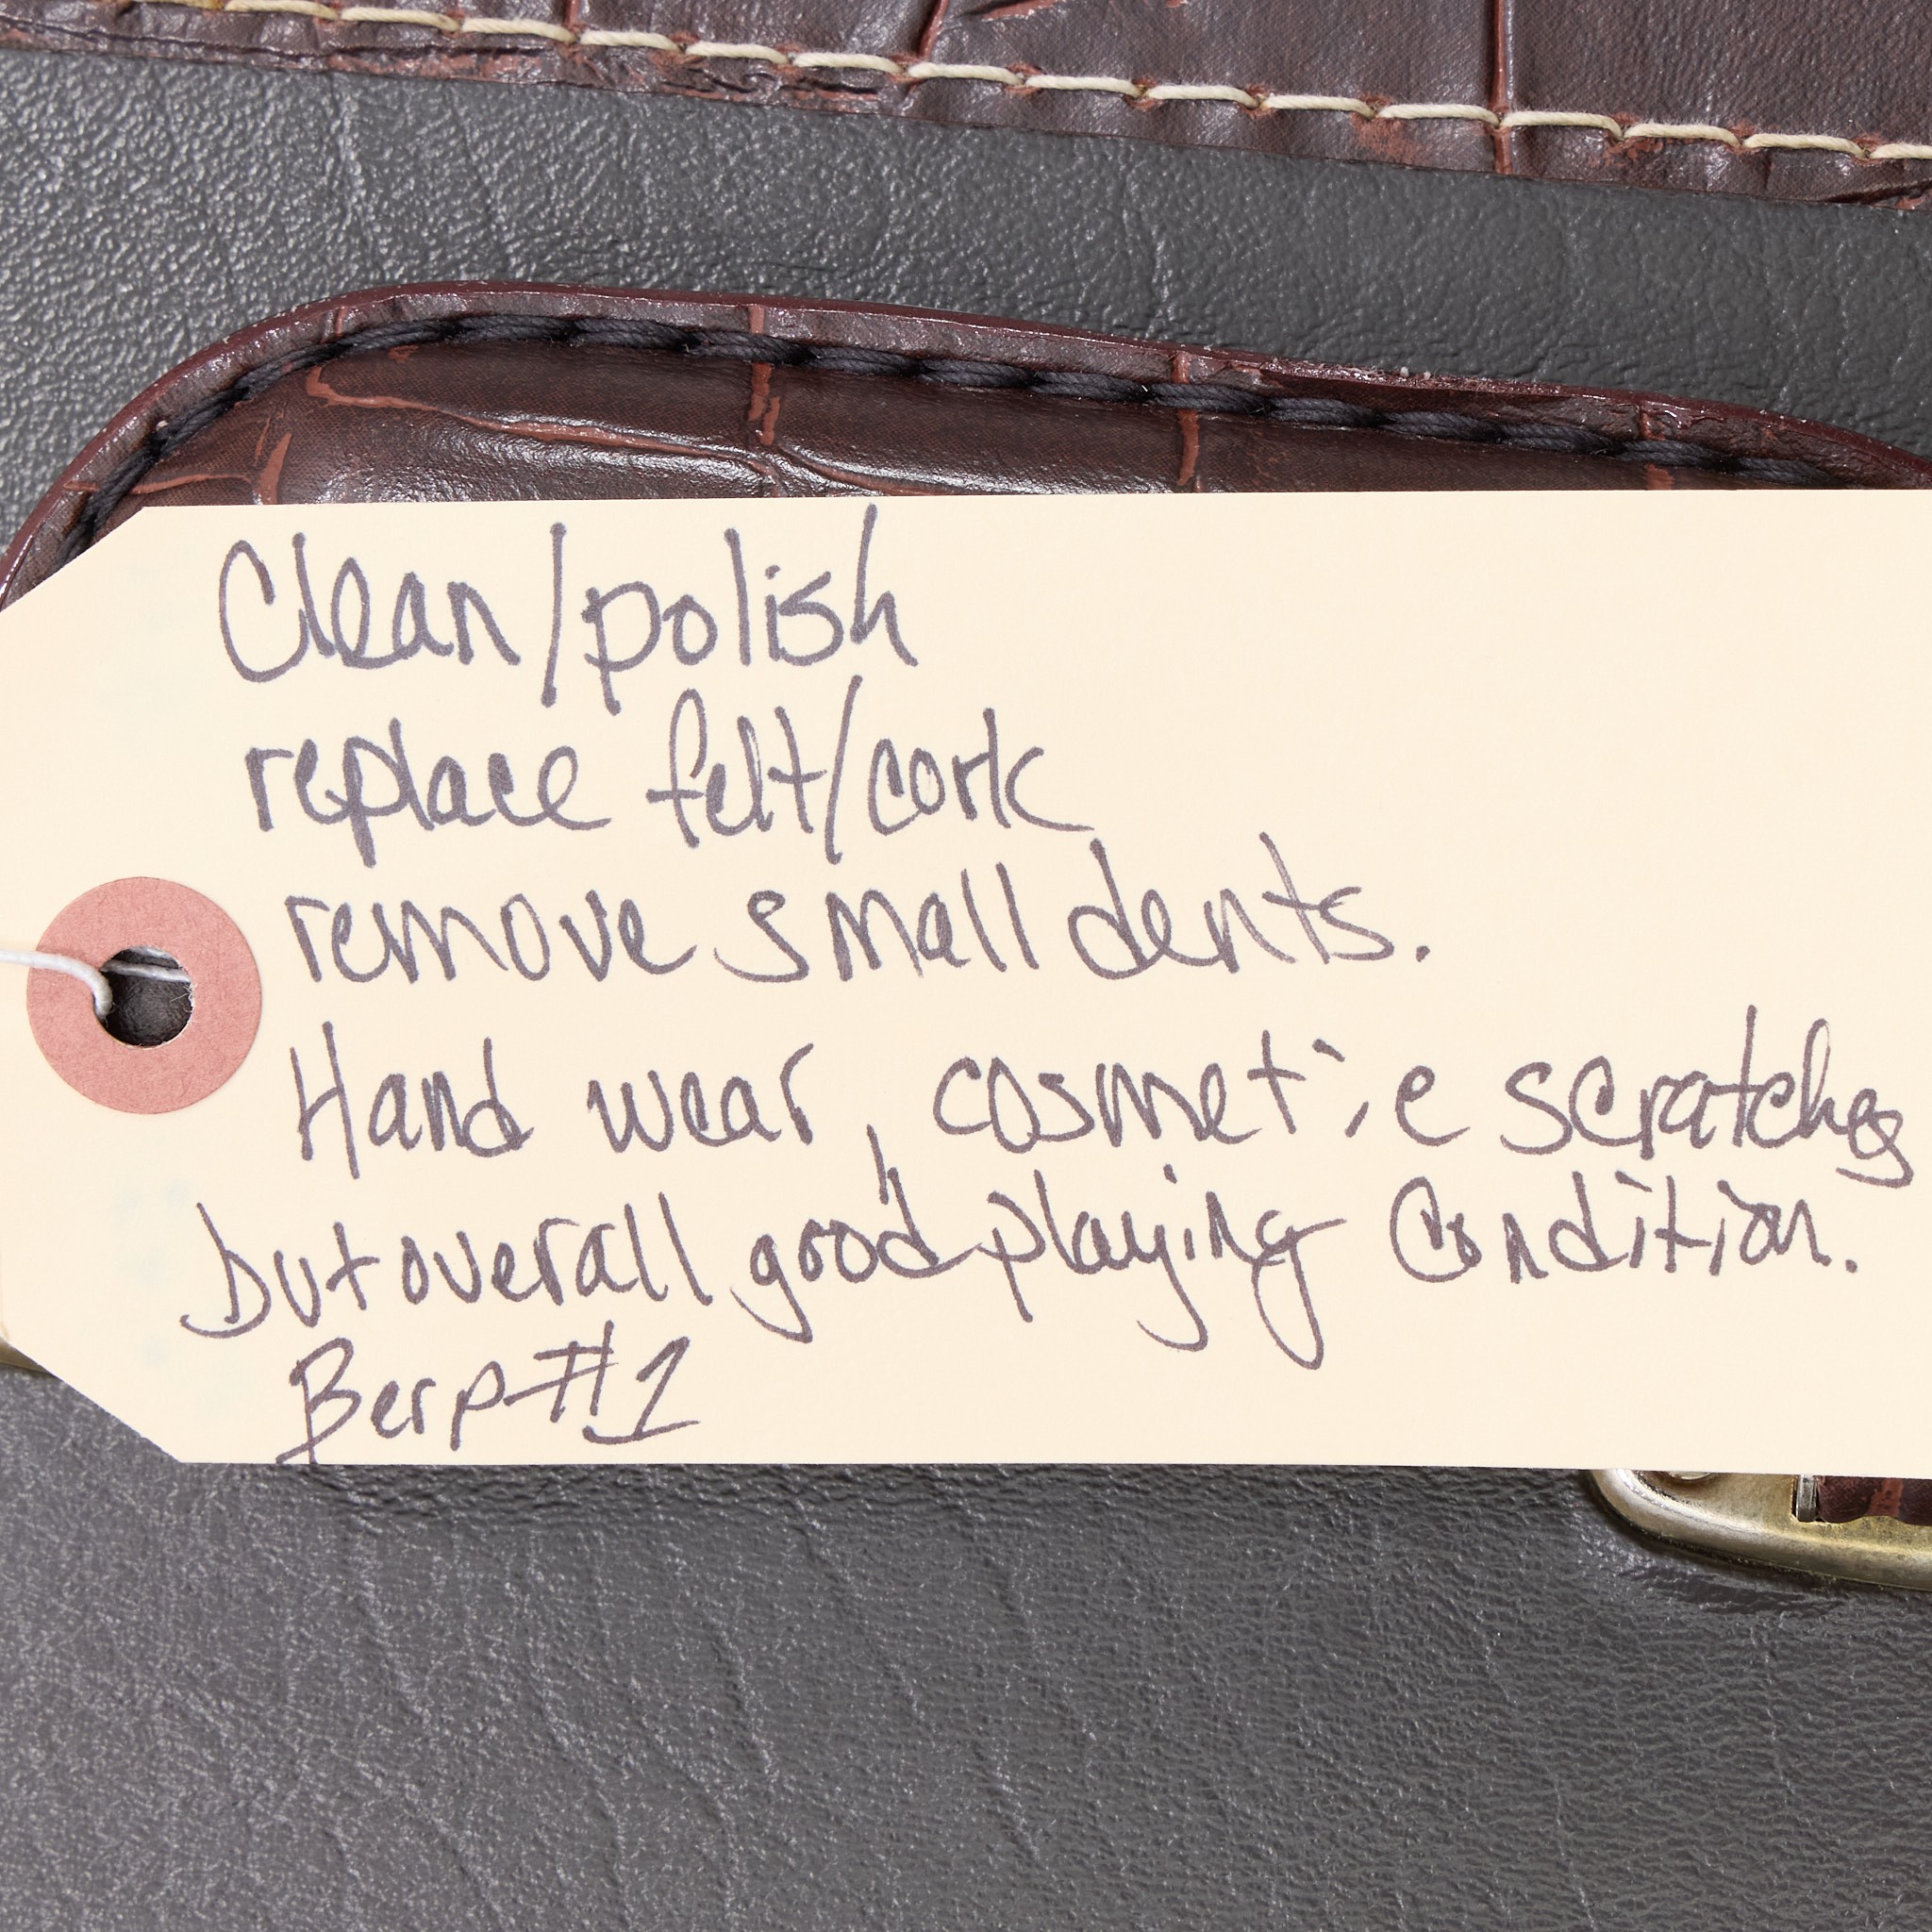 Clean/polish
replace felt/cork
remove small dents.
Hand wear, cosmetic scratches
but overall good playing Condition.
Berp #1